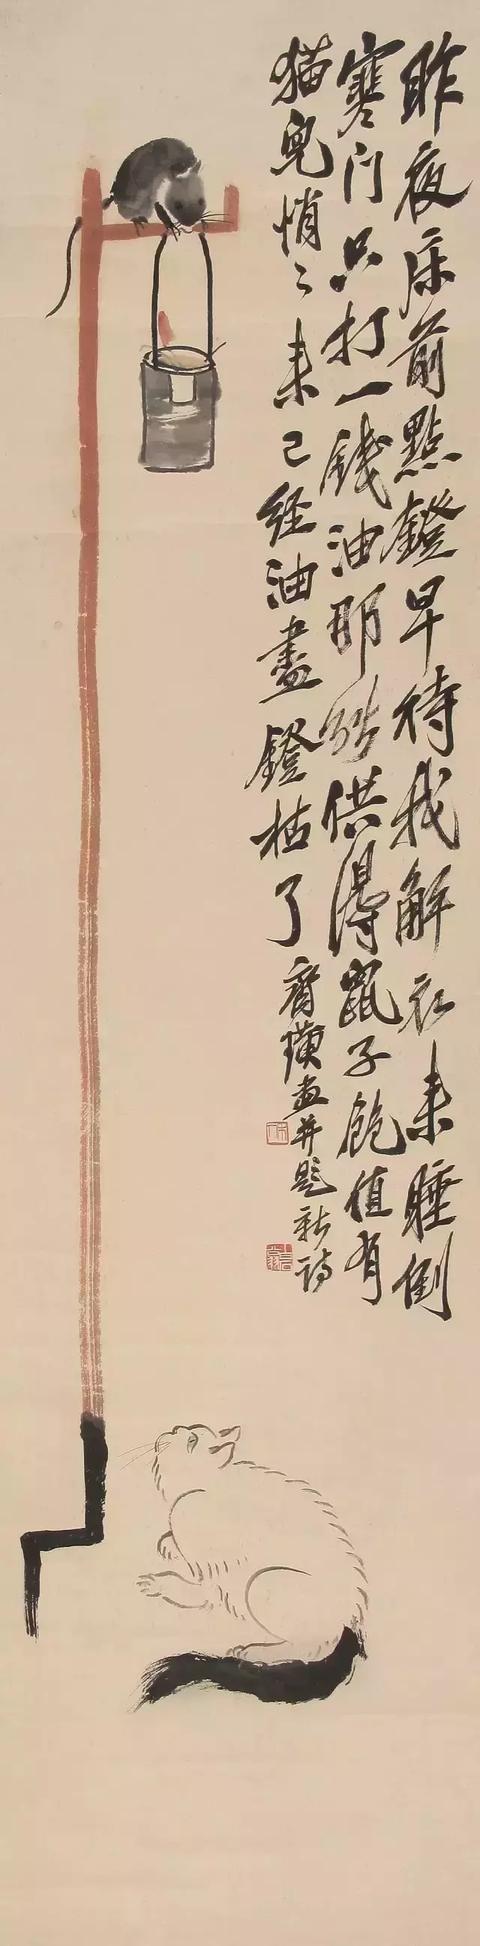 昨夜床前點鐙早待我解衣来睡倒
寒门只打一錢油那能供得鼠子飽值有
猫兒悄〻来已经油盡鐙枯了
齊璜画并题新诗